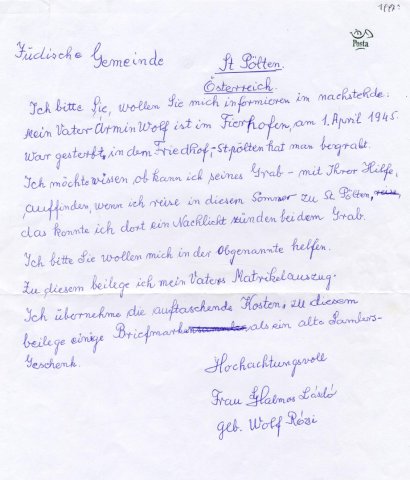 Posta
Jüdische Gemeinde St Pölten.
Österreich.
Ich bitte Sie, wollen Sie mich informieren in nachstehde:
Mein Vater Armin Wolf ist im Fierhofen, am 1. April 1945.
War gesterbt, in dem Friedhof-Stpölten hat man begrabt.
Ich möchte wissen, ob kann ich seines Grab - mit Ihrer Hilfe,
auffinden, wenn ich reise in diesem Sommer zu St Pölten,
das konnte ich dort ein Nachlicht zünden bei dem Grab.
Ich bitte Sie wollen mich in der Obgenannte helfen.
Zu diesem beilege ich mein Vaters Matrikelauszug.
Ich übernehme die auftaschende Kosten, zu diesem
beilege einige Briefmarken als ein alte Samlers-
Geschenk.
Hochachtungsvoll
Frau Halmos László
geb. Wolf Rózi